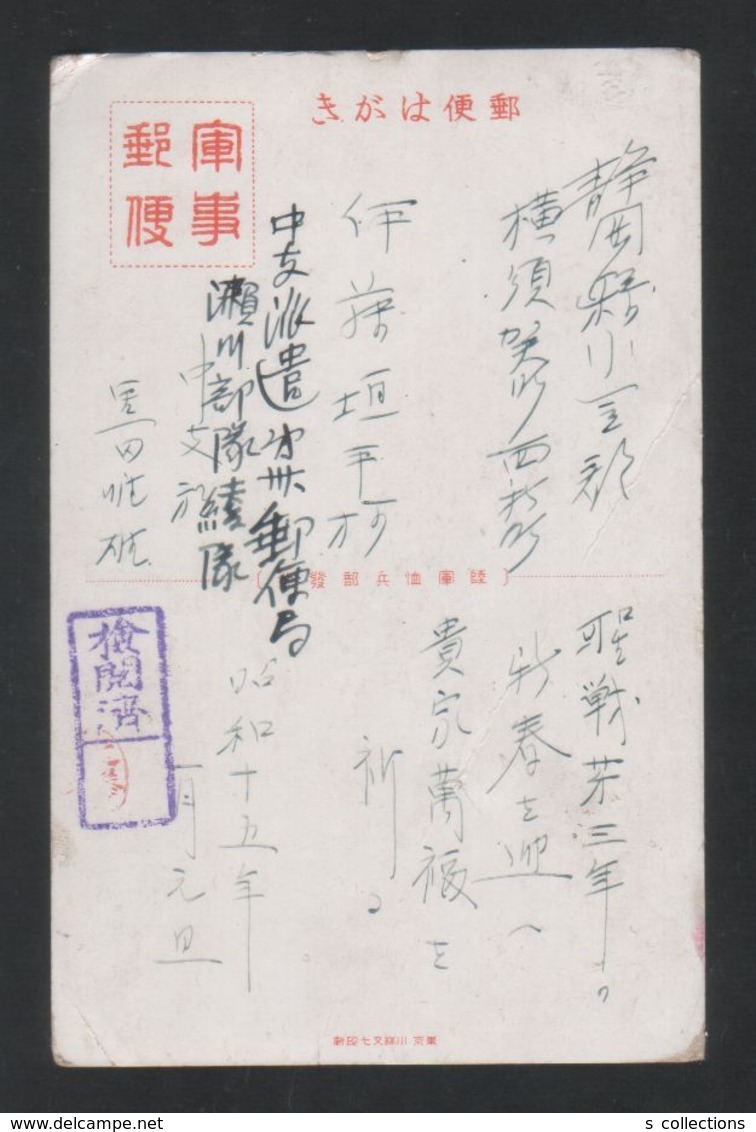 郵便はがき
軍事
郵便
静岡縣小笠郡
横須賀町西新町
伊藤垣平
中支派遣第卅六郵便局
瀬川部隊綾隊
中支
黒田
陸軍恤兵部發
聖戦第三年の
新春を迎へ
貴家萬福を
祈る
昭和十五年
一月元旦
檢閲済
東京 川瀬又七印刷
s collections